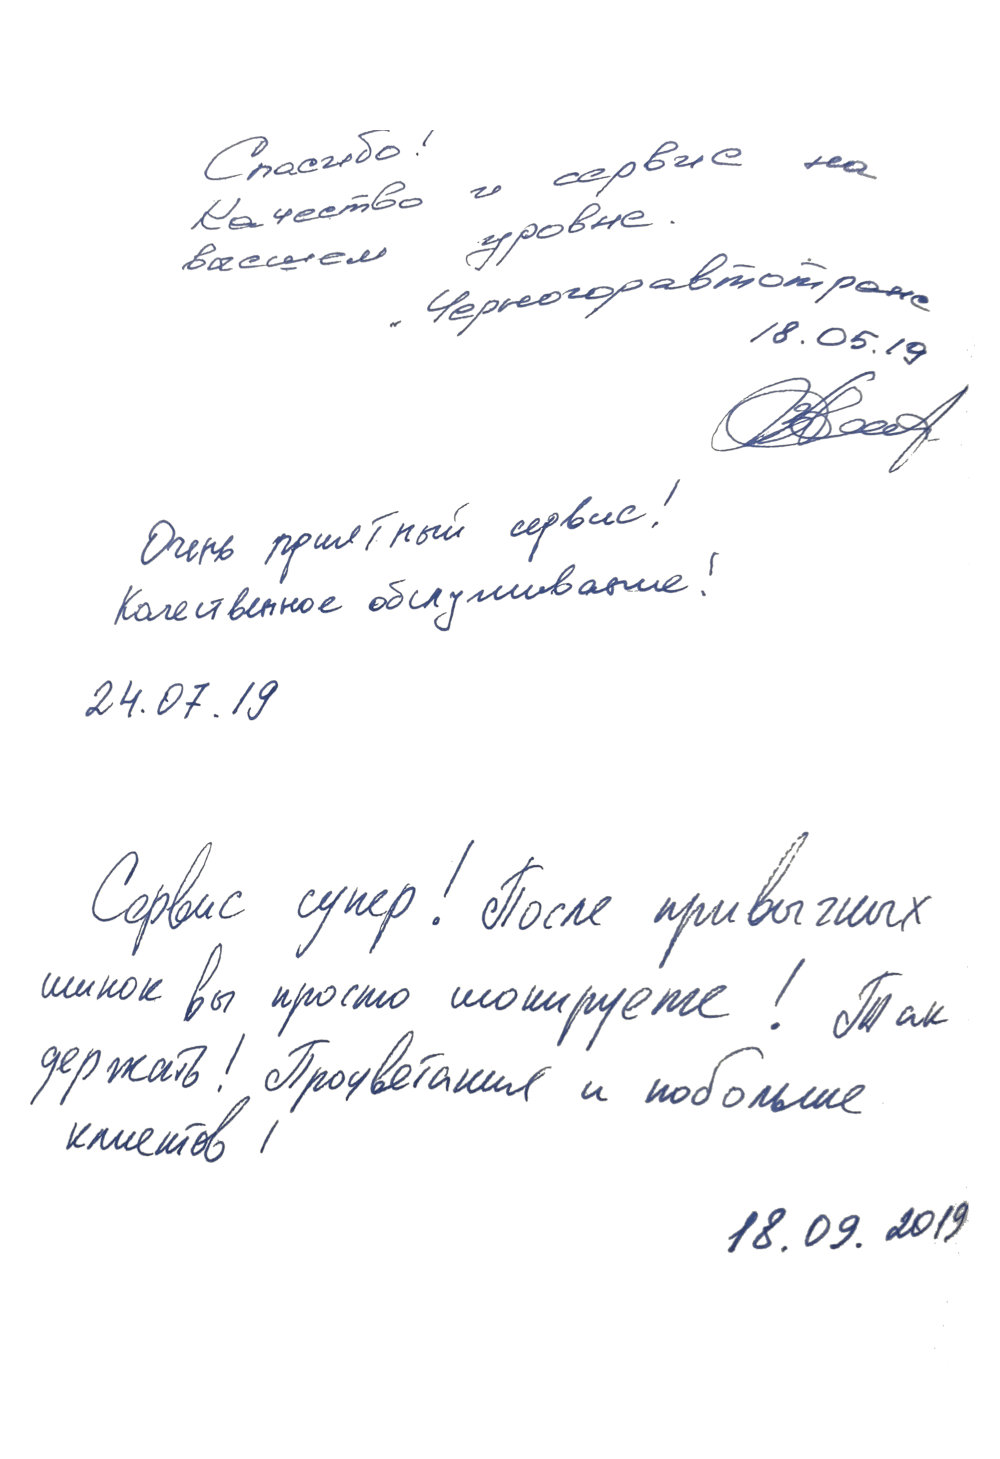 Спасибо!
Качество и сервис на
васшем уровне.
"Черногоравтотранс
18.05.19
Очень приятный сервис!
Качественное обслуживание!
24.07.19
Сервис супер! После привычных
шинок вы просто шокируете! Так
держать! Процветания и побольше
клиентов!
18.09.2019